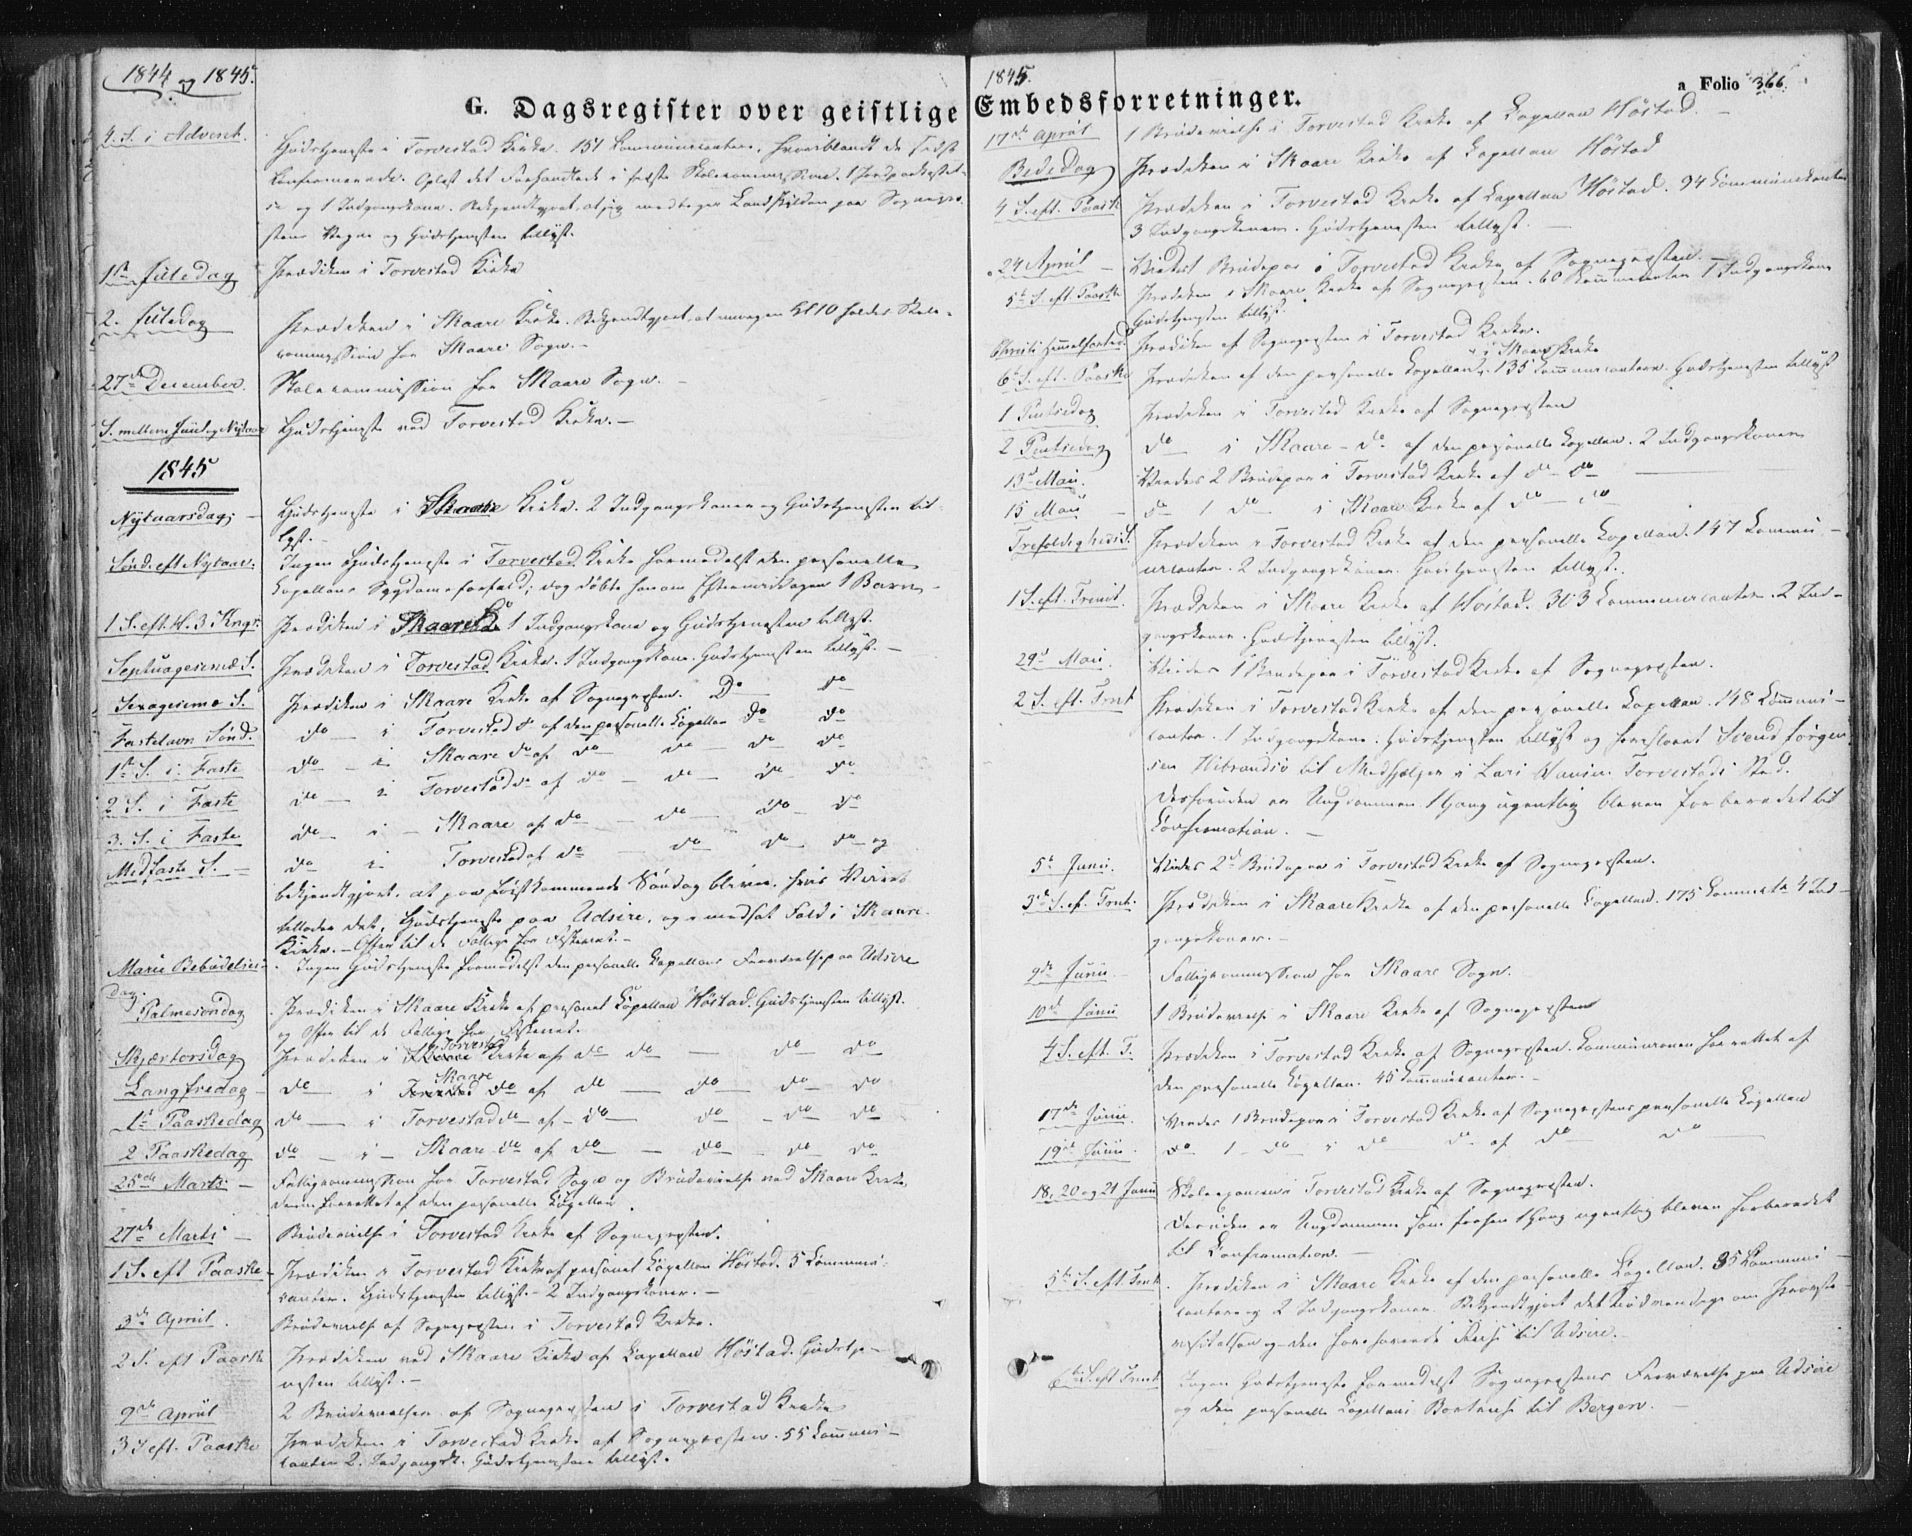 1844 og 1845.
G. Dagsregister over geistlige
4. S. i Advent. Gudstjeneste i Torvestad Kirke. 151 Communicantere, hvoriblandt de sidst
Confirmerede. Oplæst det Forhandlede i sidste Skolecommission. 1 Jordpaakastel-
se og 1 Indgangskone. Bekjendtgjort, at jeg modtager Landskylden paa Sognepræ-
stens Vegne og Gudstjenesten tillyst.
1ste Juledag Prædiken i Torvestad Kirke
2. Juledag Prædiken i Skaare Kirke. Bekjendtgjort, at morgen Kl 10 holdes Skole-
commission for Skaare Sogn.
27de December. Skolecommission for Skaare Sogn.
S. mellem Juul og Nytaar Gudstjeneste ved Torvestad Kirke.
1845
Nytaarsdag. Gudstjeneste i Skaare Kirke. 2 Indgangskoner og Gudstjenesten til-
lyst.
Sønd. eft Nytaar. Ingen Gudstjeneste i Torvestad Kirke formedelst den personelle
Capellans Sygdomsforfald; dog døbte han om Eftermiddagen 1 Barn
1 S. eft. H. 3 Kngr. Prædiken i Skaare K. 1 Indgangskone og Gudstjenesten tillyst.
Septuagesimæ S. Prædiken i Torvestad Kirke. 1 Indgangskone. Gudstjenesten tillyst.
Sexagesimæ S. Prædiken i Skaare Kirke af Sognepræsten. Do do
Fastelavn Sønd. do i Torvestad do af den personelle Capellan do do
1ste S. i Faste do i Skaare do af do do do do
2 S. i Faste do i Torvestad do af do do do do
3. S. i Faste do i Skaare af do do do do
Midfaste S. do i Torvestad af do do do do og
bekjendtgjort, at paa førstkommende Søndag bliver, hvis Veiret
tillader det, Gudstjeneste paa Udsire, og i modsat Fald i Skaare
Kirke. Offer til de Fattige for Fiskeriet.
Mariæ Bebudelses Ingen Gudstjeneste formedelst den personelle Capellans Fraværelse paa Udsire
dag.
Palmesøndag Prædiken i Skaare Kirke af personel Capellan Høstad. Gudstjenesten tillyst.
og Offer til de Fattige for Fiskeriet.
Skjærtorsdag Prædiken i Torvestad Kirke af do do do do
Langfredag do i Skaare do af do do do do
1ste Paaskedag do i Torvestad do af do do do do
2 Paaskedag do i Skaare do af do do do do
25de Marts Fattigcommission for Torvestad Sogn og Brudevielse ved Skaare Kirke,
denne forrettet af den personelle Capellan.
27de Marts Brudevielse i Torvestad Kirke af Sognepræsten.
1 S. eft Paaske Prædiken i Torvestad Kirke af personel Capellan Høstad. 5 Communi-
canter. Gudstjenesten tillyst. 2 Indgangskoner.
3de April. Brudevielse af Sognepræsten i Torvestad Kirke.
2 S. eft Paaske Prædiken ved Skaare Kirke af Capellan Høstad. Gudstje-
nesten tillyst.
9de April 2 Brudevielser af Sognepræsten i Torvestad Kirke
3 S eft. Paaske Prædiken i Torvestad Kirke af Sognepræsten. 55 Communi-
canter 2. Indgangsk. Gudstjenesten tillyst.
1845.
Embedsforretninger.
a Folio 366.
17de April 1 Brudevielse i Torvestad Kirke af Capellan Høstad.
Bededag Prædiken i Skaare Kirke af Capellan Høstad
4 S. eft. Paask Prædiken i Torvestad Kirke af Capellan Høstad. 94 Communicanter
3 Indgangskoner. Gudstjenesten tillyst.
24 April Viedet Brudepar i Torvestad Kirke af Sognepræsten.
5te S. eft. Paaske Prædiken i Skaare Kirke af Sognepræsten. 60 Communicanter 1 Indgangskone
Gudstjenesten tillyst.
Christi Himmelfartsd. Prædiken af Sognepræsten i Torvestad Kirke.
6te S. eft. Paaske Prædiken af den personelle Capellan i Skaare Kirke. 135 Communicantere. Gudstjenesten tillyst
1 Pintsedag Prædiken i Torvestad Kirke af Sognepræsten
2 Pintsedag do i Skaare do af den personelle Capellan. 2 Indgangskoner
13de Mai. Viedes 2 Brudepar i Torvestad Kirke af do do
15 Mai do 1 do i Skaare Kirke af do do
Trefoldigheds S. Prædiken i Torvestad Kirke af den personelle Capellan. 147 Commu-
nicanter. 2 Indgangskoner. Gudstjenesten tillyst.
1 S. eft. Trinit. Prædiken i Skaare Kirke af Høstad. 303 Communicanter. 2 Ind-
gangskoner. Gudstjenesten tillyst.
29de Mai. Viedes 1 Brudepar i Torvestad Kirke af Sognepræsten.
2 S. eft. Trnt Prædiken i Torvestad Kirke af den personelle Capellan. 148 Communi-
canter. 1 Indgangskone. Gudstjenesten tillyst og foreslaaet Svend Jørgen
sen Hibrandsø til Medhjælper i Lars Torvestads Sted.
Desforuden at Ungdommen 1 Gang ugentlig bliver forberedet til
Confirmation.
5te Junii. Viedes 2de Brudepar i Torvestad Kirke af Sognepræsten.
3die S. ef. Trnt. Prædiken i Skaare Kirke af den personelle Capellan. 175 Communte 4 Ind-
gangskoner.
9de Junii Fattigcommission for Skaare Sogn.
10de Junii 1 Brudevielse i Skaare Kirke af Sognepræsten
4 S. eft. T. Prædiken i Torvestad Kirke af Sognepræsten. Communionen forrettet af
den personelle Capellan. 45 Communicanter.
17de Junii. Viedes 1 Brudepar i Torvestad Kirke af Sognepræstens personelle Capellan
19de Junii. do 1 do i do do af do do
18, 20 og 21 Junii Skoleexamen i Torvestad Kirke af Sognepræsten.
Desuden at Ungdommen som forhen 1 Gang ugentlig bliver forberedet
til Confirmation.
5te S. eft Trnt. Prædiken i Skaare Kirke af den personelle Capellan. 35 Communi-
cantere og 2 Indgangskoner. Bekjendtgjort det Nødvendige om Provste-
visitatsen og den forehavende Reise til Udsire.
6te S. eft Trnt Ingen Gudstjeneste formedelst Sognepræstens Fraværelse paa Udsire
og den personelle Capellans Bortreise til Bergen.